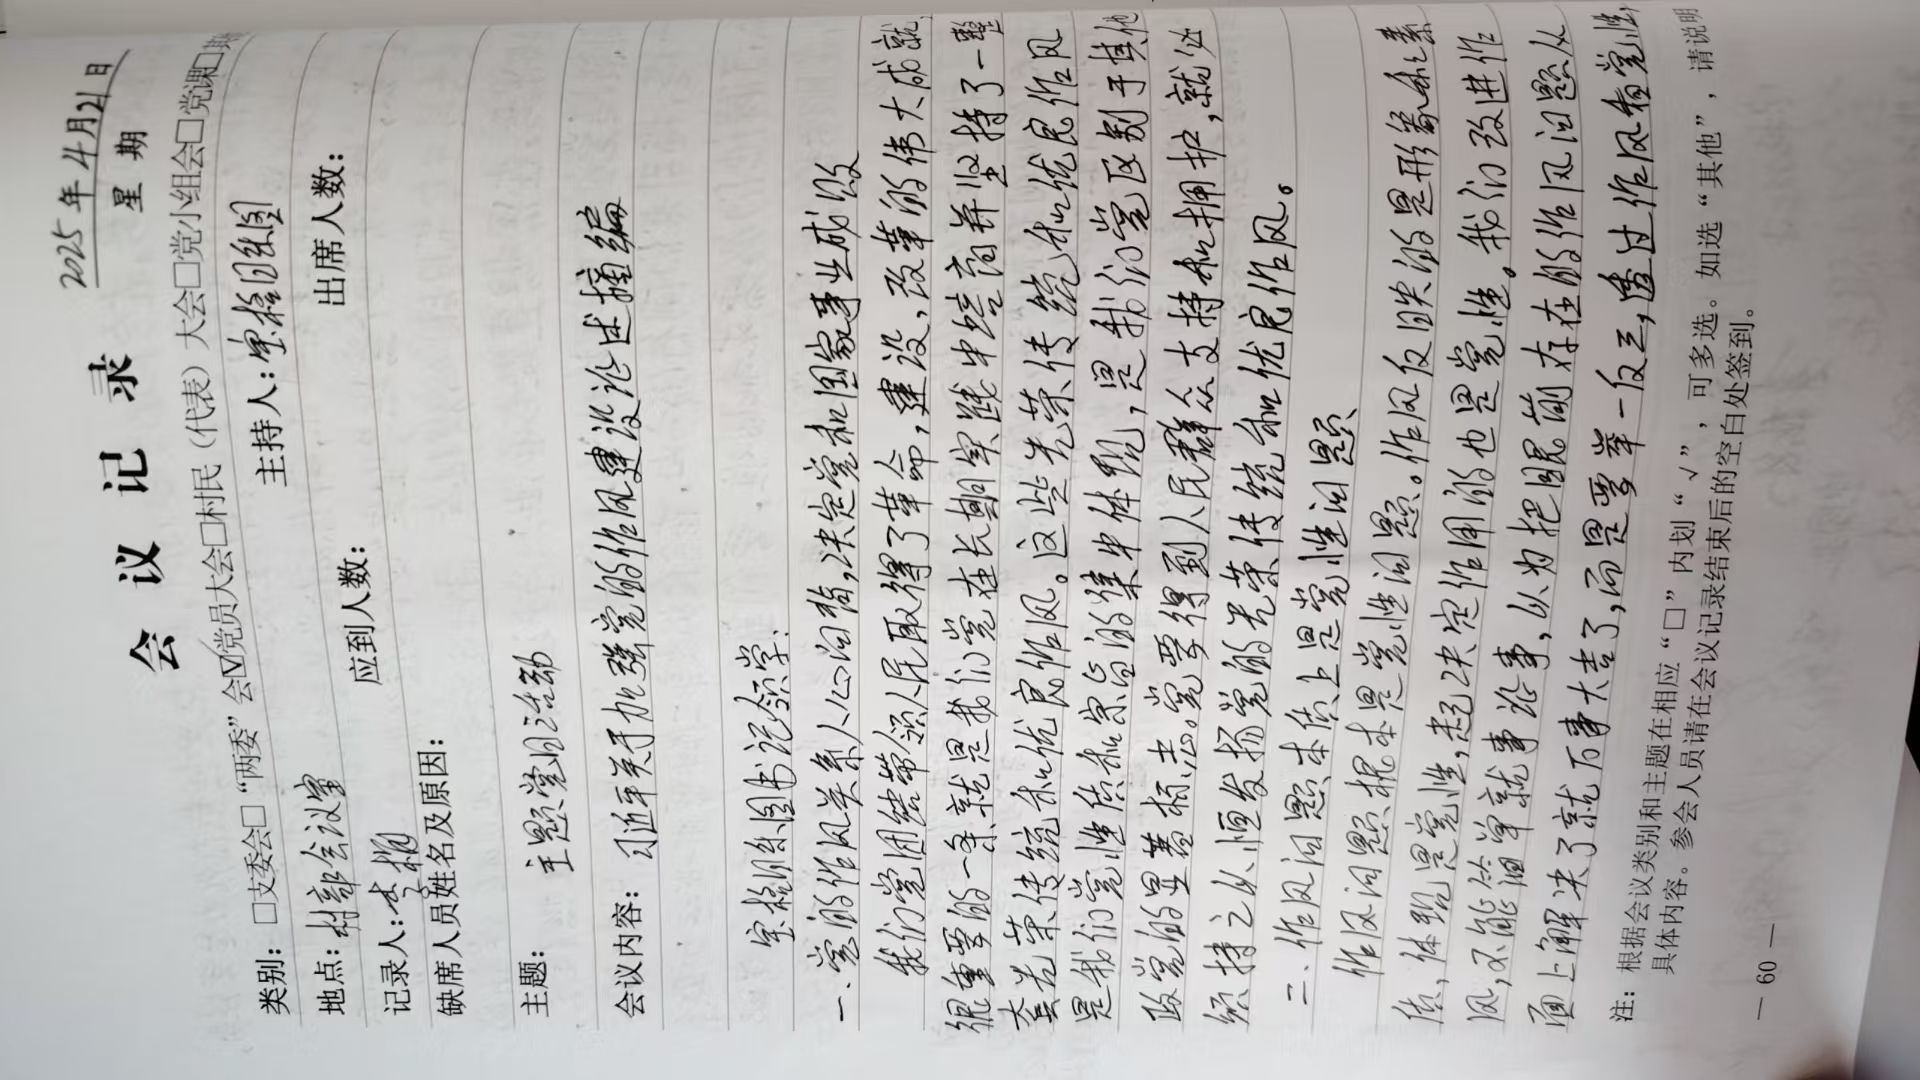 会议记录
2025年4月21日
星期
类别：□支委会□“两委”会☑党员大会□村民（代表）大会□党小组会□党课□其
地点：村部会议室 主持人：宝格日乐图
记录人：李 应到人数： 出席人数：
缺席人员姓名及原因：
主题： 主题党日活动
会议内容：习近平关于加强党的作风建设论述摘编
宝格日乐图书记领学：
一、党的作风关系人心向背，决定党和国家事业成败
我们党团结带领人民取得了革命，建设，改革的伟大成就，
很重要的一条就是我们党在长期实践中培育并坚持了一整
套光荣传统和优良作风。这些光荣传统和优良作风
是我们党性质和宗旨的集中体现，是我们党区别于其他
政党的显著标志。党要得到人民群众支持和拥护，就必
须持之以恒发扬党的光荣传统和优良作风。
二、作风问题本质上是党性问题
作风问题根本是党性问题。作风反映的是形象和素
质，体现是党性，起决定作用的也是党性。我们改进作
风，不能简单就事论事，以为把眼前存在的作风问题从
面上解决了就万事大吉了，而是要举一反三，透过作风看党性，
注：根据会议类别和主题在相应“□”内划“√”，可多选。如选“其他”，请说明
具体内容。参会人员请在会议记录结束后的空白处签到。
— 60 —